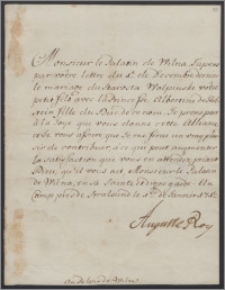 Monsieur le Palatin de Wilna. J'apens
par votre lettre du 4e de Decembre dernier
le mariage du Starosta
petit fils avec la Princesse Albertine de
fille du Duc de ce nom. Je prens part
à la Joye que vous donne cette Alliance,
et vous assure que Je me feray un vray plai-
sir de contribuer à ce qui peut augmenter
la satisfaction que vous en attendez, priant
Dieu, qu'il vous ait, Monsieur le Palatin
de Wilna, en sa Sainte et digne garde. Au
Camp près de Stralsund le
Auguste Roy
Au Palatin de Wilna